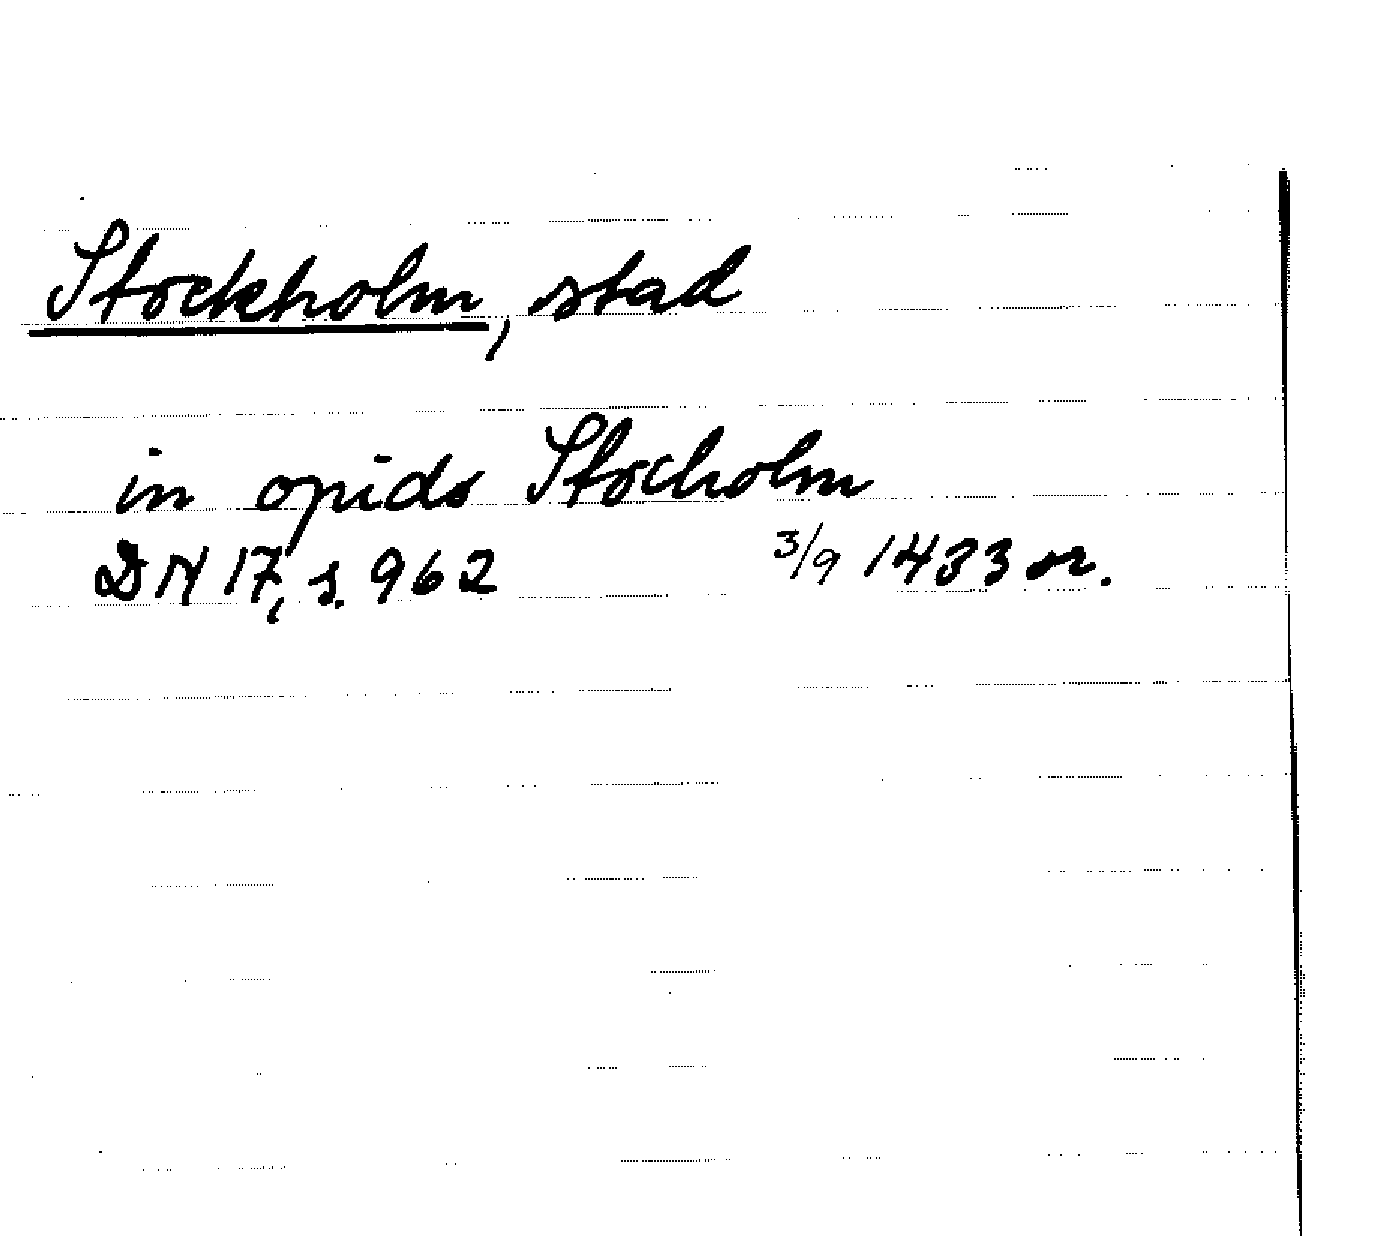 Stockholm, stad
in opido Stocholm
DN 17, s. 962 3/9 1433 or.